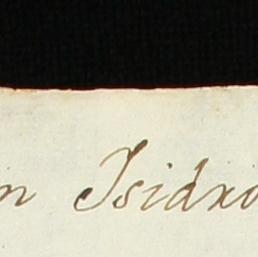 n Isidro